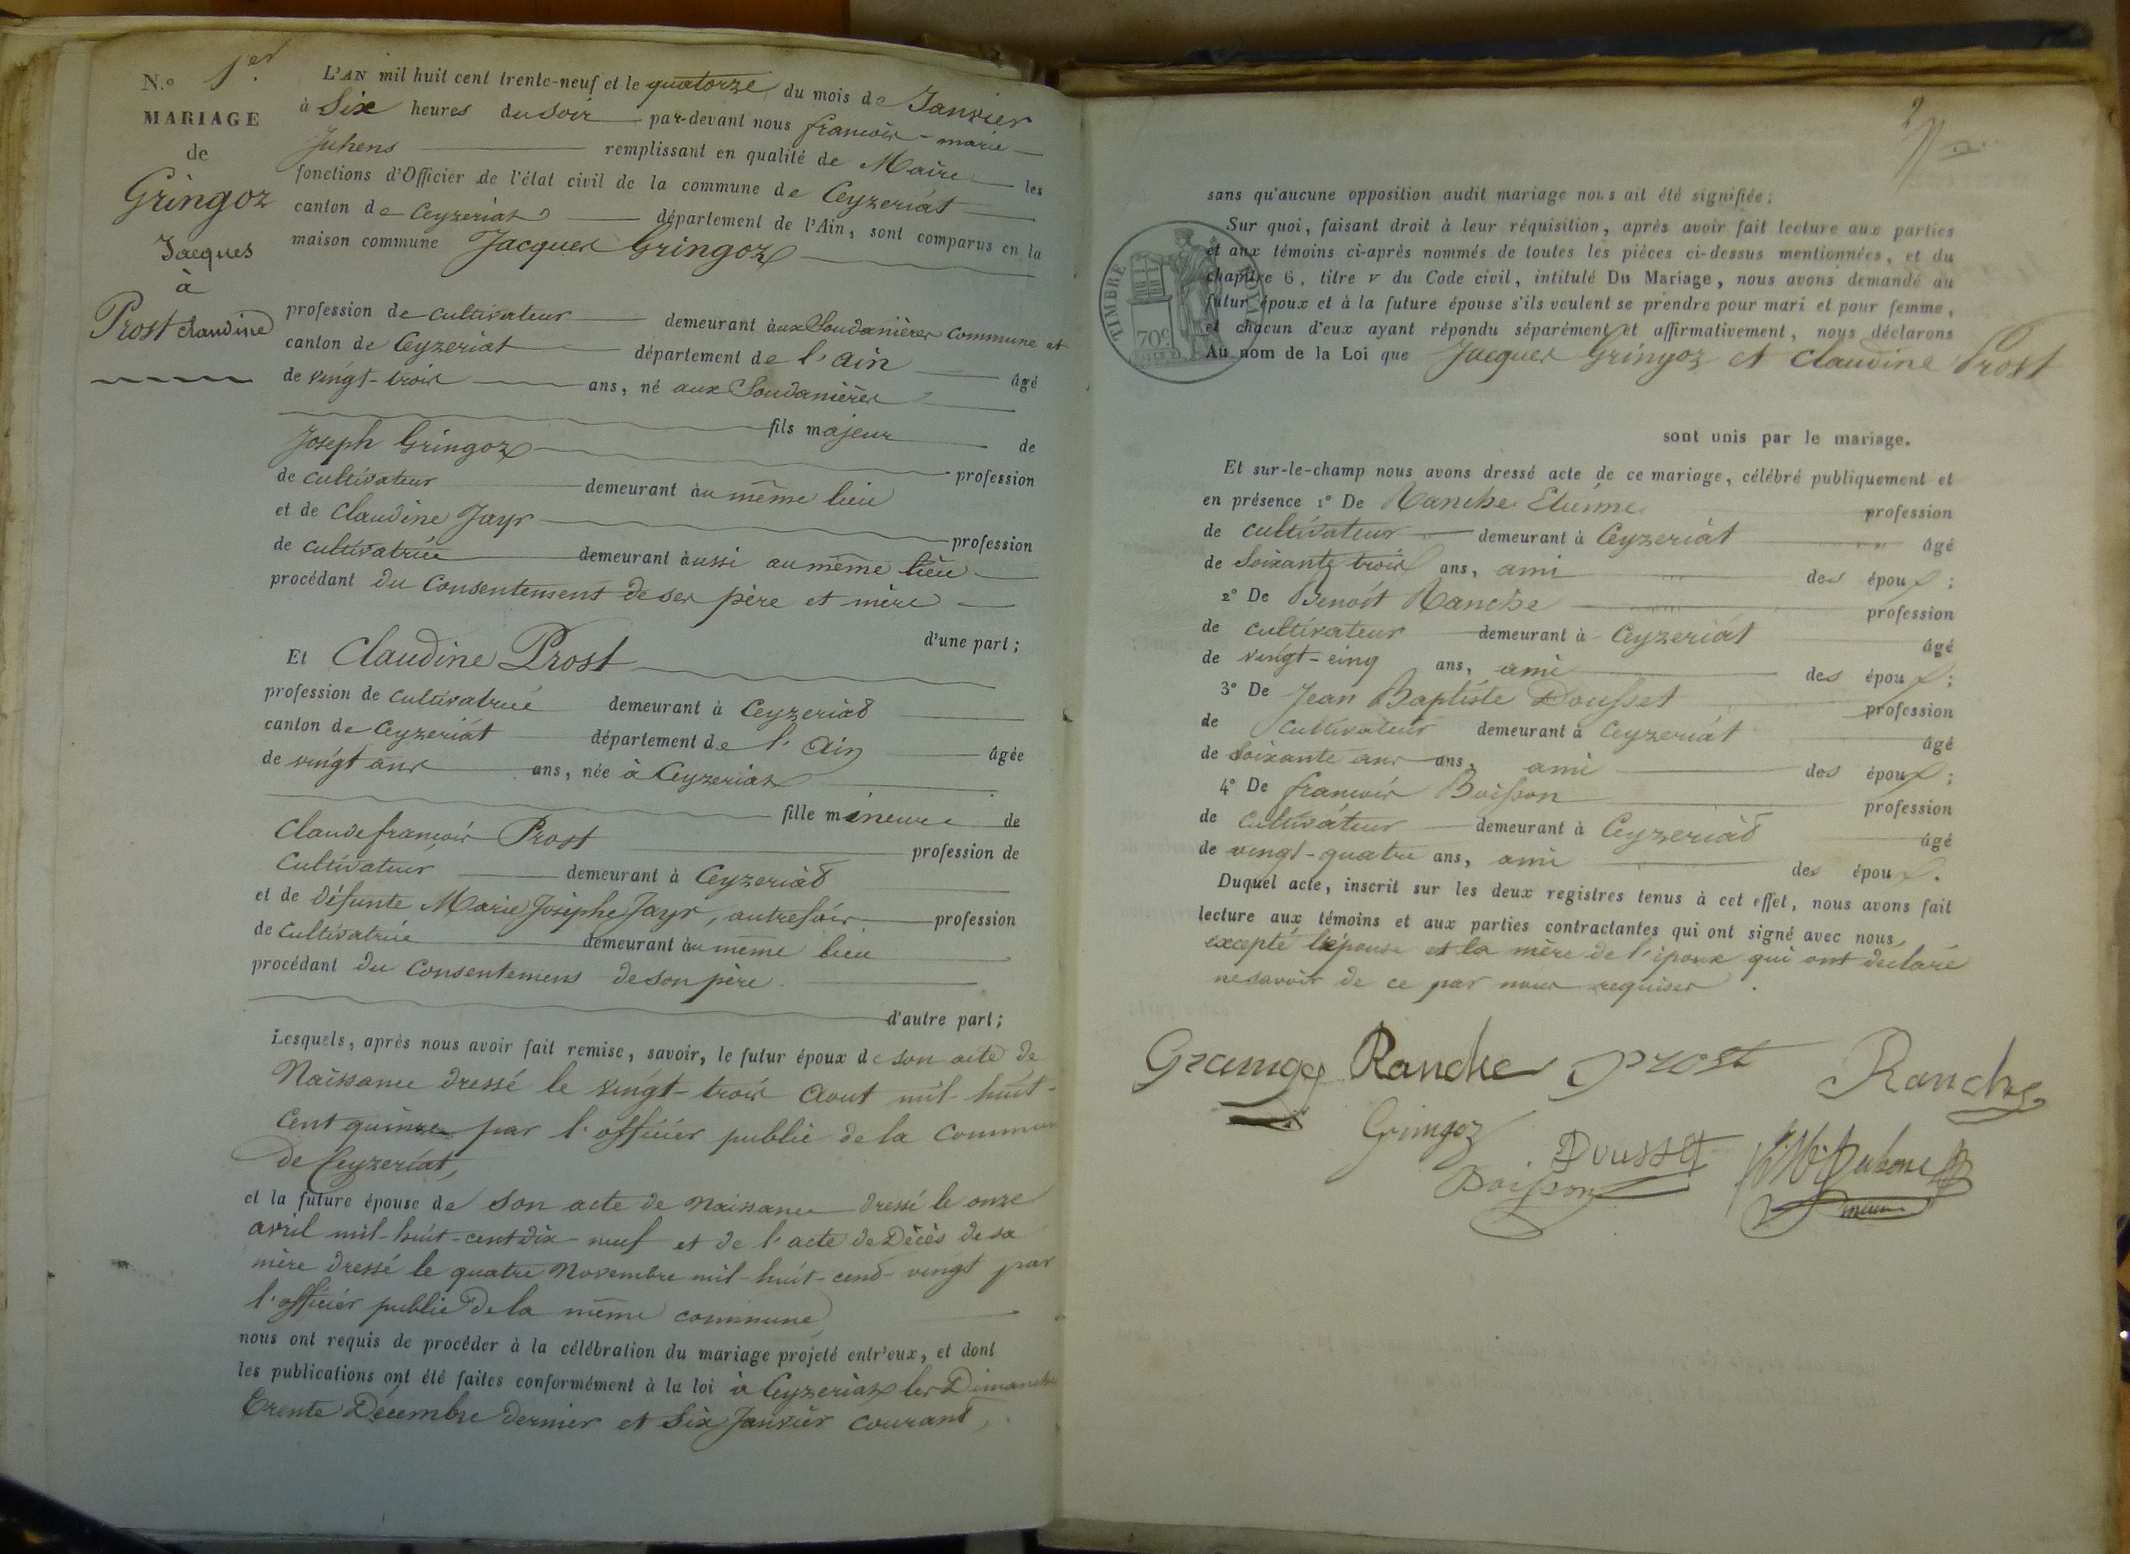 N.o 1er
MARIAGE
de
Gringoz
Jacques
à
Prost claudine
L'AN mil huit cent trente-neuf et le quatorze du mois de Janvier
à Six heures du soir par-devant nous francois-marie
Juhens remplissant en qualité de Maire les
fonctions d'Officier de l'état civil de la commune de Ceyzeriat
canton de Ceyzeriat département de l'Ain, sont comparus en la
maison commune Jacques Gringoz
profession de cultivateur demeurant aux Soudanières commune et
canton de Ceyzeriat département de l'ain âgé
de vingt-trois ans, né aux Soudanières
fils majeur de
Joseph Gringoz profession
de cultivateur demeurant au même lieu
et de Claudine Jayr profession
de cultivatrice demeurant aussi au même lieu
procédant du Consentement de ses père et mère
d'une part;
Et Claudine Prost
profession de cultivatrice demeurant à Ceyzeriat
canton de Ceyzeriat département de l'Ain âgée
de vingt ans ans, née à Ceyzeriat
fille mineure de
Claude françois Prost profession de
Cultivateur demeurant à Ceyzeriat
et de défunte Marie Josephe Jayr, autrefois profession
de cultivatrice demeurant au même lieu
procédant du Consentement de son père
d'autre part;
Lesquels, après nous avoir fait remise, savoir, le futur époux de son acte de
Naissance dressé le vingt-trois Aout mil huit-
Cent quinze par l'officier public de la Commune
de Ceyzeriat,
et la future épouse de son acte de Naissance dressé le onze
avril mil-huit-cent dix-neuf et de l'acte de Décès de sa
mère dressé le quatre Novembre mil-huit-cent-vingt par
l'officier public de la même commune,
nous ont requis de procéder à la célébration du mariage projeté entr'eux, et dont
les publications ont été faites conformément à la loi à Ceyzeriat les Dimanche
Trente Décembre dernier et Six Janvier courant,
2
sans qu'aucune opposition audit mariage nous ait été signifiée;
Sur quoi, faisant droit à leur réquisition, après avoir fait lecture aux parties
et aux témoins ci-après nommés de toutes les pièces ci-dessus mentionnées, et du
chapitre 6, titre v du Code civil, intitulé Du Mariage, nous avons demandé au
futur époux et à la future épouse s'ils veulent se prendre pour mari et pour femme,
et chacun d'eux ayant répondu séparément et affirmativement, nous déclarons
Au nom de la Loi que Jacques Gringoz et Claudine Prost
TIMBRE ROYAL
70c
sont unis par le mariage.
Et sur-le-champ nous avons dressé acte de ce mariage, célébré publiquement et
en présence 1o De Ranche Etienne profession
de cultivateur demeurant à Ceyzeriat âgé
de Soixante trois ans, ami des époux;
2o De Benoit Ranche profession
de cultivateur demeurant à Ceyzeriat âgé
de vingt-cinq ans, ami des époux;
3o De Jean Baptiste Dousset profession
de cultivateur demeurant à Ceyzeriat âgé
de Soixante ans ans, ami des époux;
4o De francois Boisson profession
de Cultivateur demeurant à Ceyzeriat âgé
de vingt-quatre ans, ami des époux.
Duquel acte, inscrit sur les deux registres tenus à cet effet, nous avons fait
lecture aux témoins et aux parties contractantes qui ont signé avec nous,
excepté l'épouse et la mère de l'époux qui ont déclaré
ne savoir de ce par nous requises.
Ranche Prost Ranche
Gringoz Dousset
Boisson